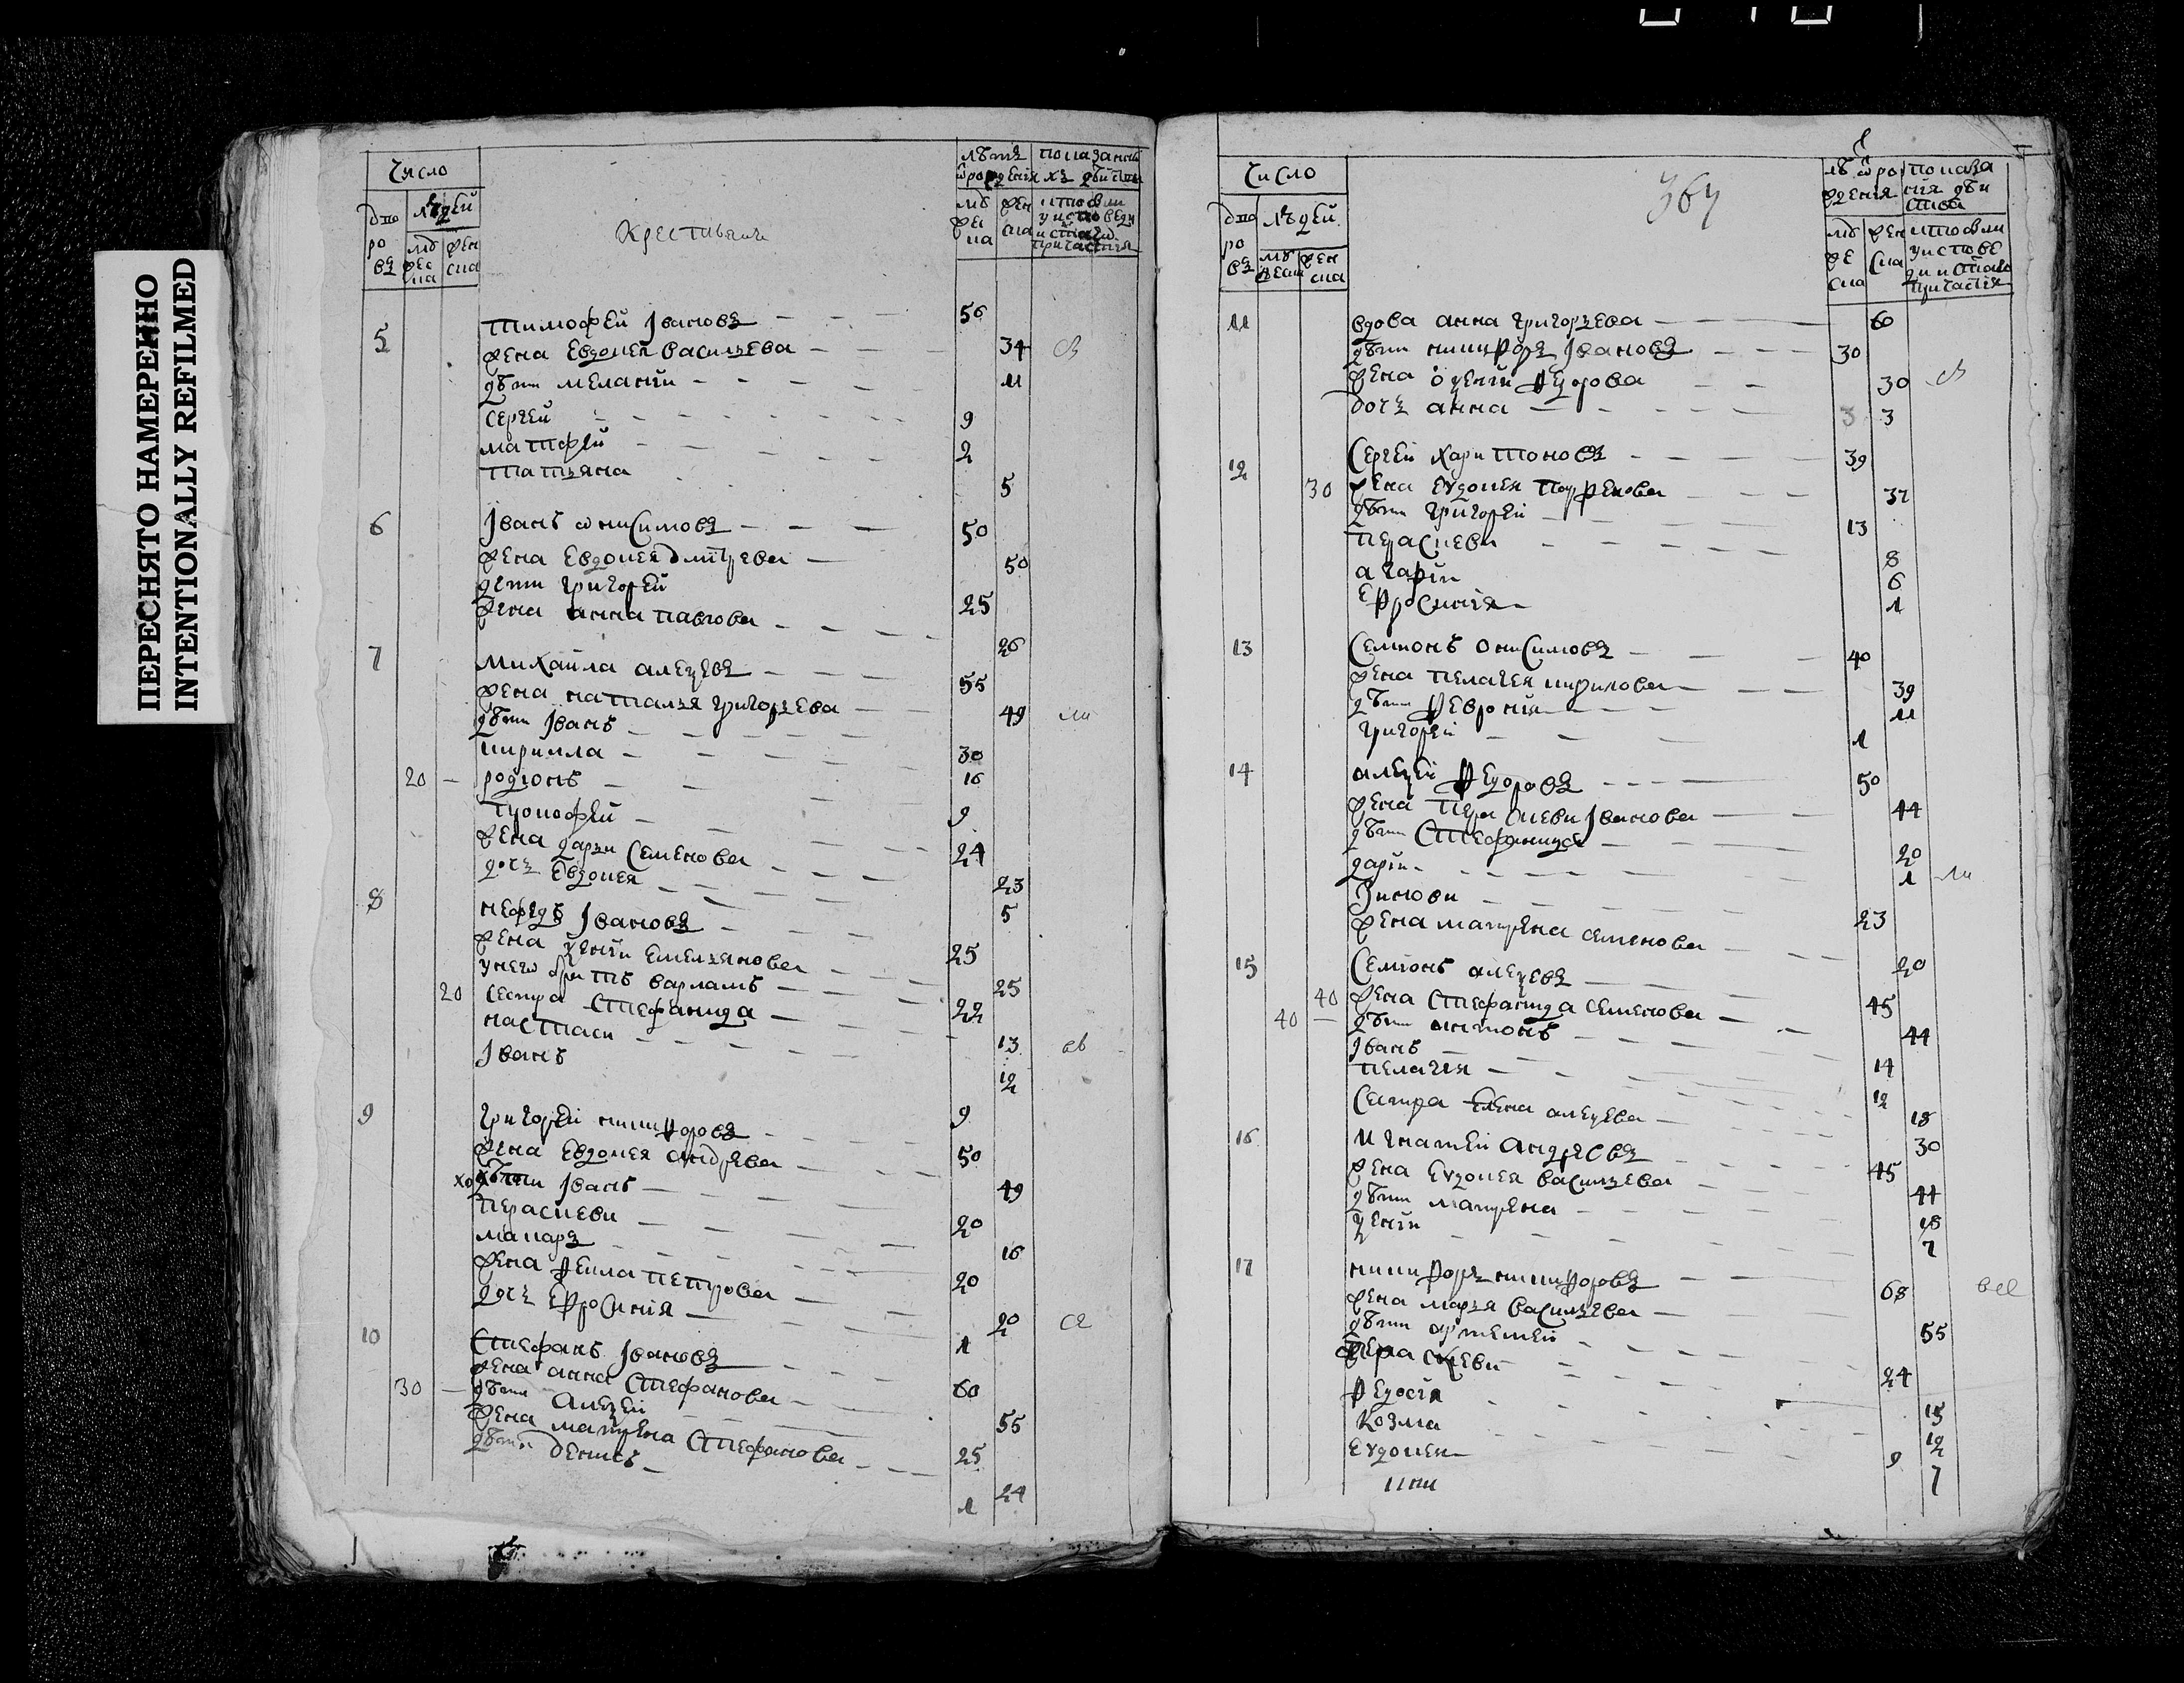 ПЕРЕСНЯТО НАМЕРЕННО
INTENTIONALLY REFILMED
Число
дво
ро
въ
людей
му
жес
ка
жен
ска
Крестьяне
лѣтъ
от рождения
му
же
ка
жен
ска
показание
кто были
у исповеди
и святаго
причастия
5
Тимофей Івановъ 56
жена Евдокея Васильева 34
дѣти Мелания 11
Сергей 9
Матфей 2
Татьяна 5
6
Іванъ Онисимовъ 50
жена Евдокея Дмитрева 50
дети Григорей 25
жена Анна Павлова 26
7
Михайла Алеѯевъ 55
жена Наталья Григорьева 49
дѣти Іванъ 30
Кирилла 16
20 Родіонъ 9
Прокофей 24
жена Дарья Семенова 23
дочь Евдокея 5
8
Нефедъ Івановъ 25
жена Ѯения Емельянова 25
у него братъ Варламъ 22
20 сестра Стефанида 13
Настася 12
Іванъ 9
9
Григорей Никифоровъ 50
жена Евдокея Андрева 49
дѣти Іванъ 20
Параскева 16
Макаръ 20
жена Фекла Петрова 20
дочь Ефросиния 1
10
Стефанъ Івановъ 60
жена Анна Стефанова 55
30 дѣти Алеѯей 25
жена Матрена Стефанова 24
дѣти Денисъ 1
364
Число
дво
ро
въ
людей
му
жеска
жен
ска
лѣ от ро
ждения
му
же
ска
жен
ска
показа
ния
кто были
у испове
ди и святаго
причастия
11
вдова Анна Григорьева 60
дѣти Никифоръ Івановъ 30
жена Оѯения Федорова 30
дочь Анна 3 3
12
Сергей Харитоновъ 39
30 жена Еудокея Парфенова 37
дѣти Григорей 13
Параскева 8
Агафия 6
Ефросиния 1
13
Семионъ Онисимовъ 40
жена Пелагея Кирилова 39
дѣти Феврония 11
Григорей 1
14
Алеѯей Федоровъ 50
жена Параскева Іванова 44
дѣти Стефанида 20
Дария 1
Зиновей 23
жена Матрена Семенова 20
15
Семионъ Алеѯевъ 45
40 жена Стефанида Семенова 44
40 дѣти Антонъ 14
Іванъ 12
Пелагея 18
Сестра Елена Алеѯева 30
16
Игнатей Андреевъ 45
жена Еудокея Васильева 44
дѣти Матрена 18
Ѯения 7
17
Никифоръ Никифоровъ 68
жена Марья Васильева 55
дѣти Артемей 24
Параскева 15
Федосия 12
Козма 9
Еудокея 7